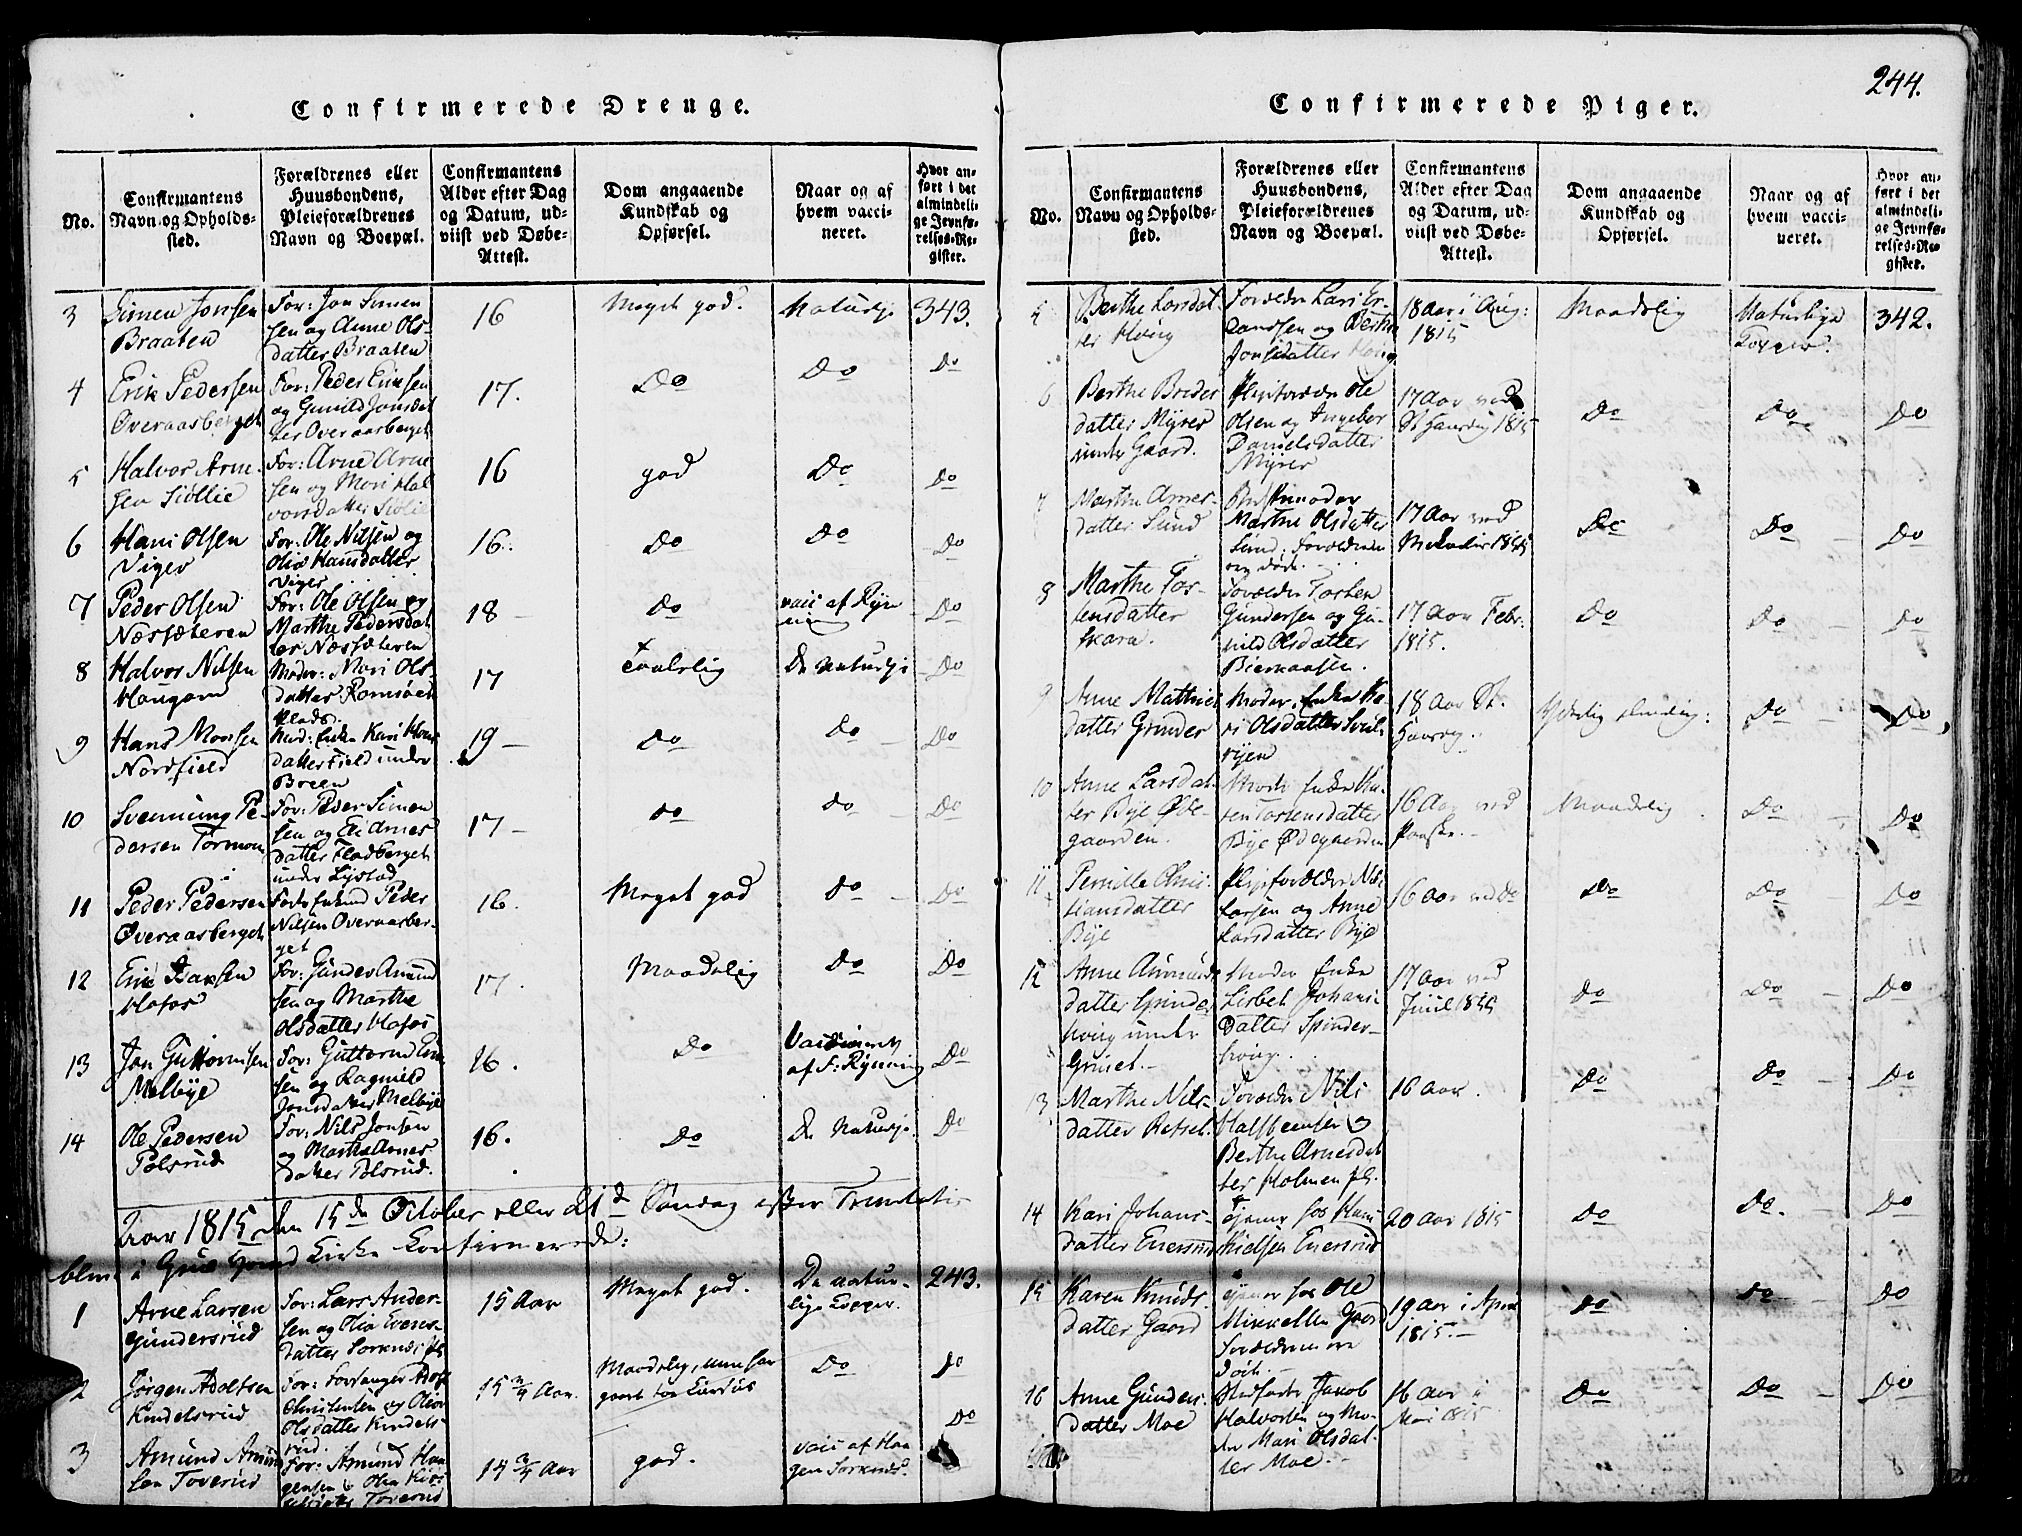 244.
Confirmerede Drenge.
No.
Confirmantens
Navn og Opholds-
sted.
Forældrenes eller
Huusbondens,
Pleieforældrenes
Navn og Boepæl.
Confirmantens
Alder efter Dag
og Datum, ud-
viist ved Døbe-
Attest.
Dom angaaende
Kundskab og
Opførsel.
Naar og af
hvem vacci-
neret.
Hvor an-
ført i det
almindeli-
ge Jevnfø-
relses-Re-
gister.
3
Simen Jonsen
Braaten
For: Jon Simen
sen og Anne Ols-
datter Braaten
16
Meget god.
Naturlje
343.
4
Erik Pedersen
Overaasberget
For: Peder Erimsen
og Gunild Jonsdat
ter Overaasberget
17.
Do
Do
Do
5
Halvor Arne-
sen Siøllie
For: Arne Arne
sen og Mari Hal
vorsdatter Siøllie
16
god
Do
Do
6
Hans Olsen
Viger
For: Ole Nilsen og
Olia Hansdatter
Viger
16.
Do
Do
Do
7
Peder Olsen
Næssæteren
For: Ole Olsen og
Marthe Pedersdat
ter Næssæteren
18
Do
vacc af Ryn
Do
8
Halvor Nilsen
Haugarn
Moder: Mari Ols
datter Romsöen
Plads.
17
Taalelig
De Naturlje
Do
9
Hans Monsen
Nordfield
Mod: Enke Kari Hans
datter Field under
Breen
19
Do
Do
Do
10
Svenning Pe-
dersen Tormoen
For: Peder Simen
sen og Eli Arnes
datter Fladberget
under Lystad
17
do
do
Do
11
Peder Pedersen
Overaasberget
Peder
Nilsen Overaasber-
get
16.
Meget god
Do
Do
12
Eric
Hofos
For: Gunder Amund
sen og Marthe
Olsdatter Hofos
17.
Maadelig
Do
Do
13
Jon Guttormsen
Melbye
For: Guttorm Em
sen og Ragnild
Jonsdatter Melbye
16.
Do
Vaccineret
af F: Rynning
Do
14
Ole Pedersen
Polsrud
For: Nils Jonsen
og Marthe Arnes
datter Polsrud.
16.
Do
De Naturlje
Do
Aar 1815 den 15de October eller 21d Søndag efter Trinitatis
blev i Grue Sogns Kirke Confirmerede:
1
Arne Larsen
Gundersrud
For: Lars Ander-
sen og Olia Evens-
datter Sorknes
15 Aar
Meget god.
De natur-
lige Kopper.
243.
2
Jørgen Adolfsen
Kindelsrud
For: Forsanger Adolf
Christensen og Olia
Olsdatter Kindels-
rud.
15 2/4 Aar.
Maadelig,
Do
Do
3
Amund Amund
sen Toverud
For: Amund Haa
gensen
Toverud
14 3/4 Aar
god.
vacc af Haa
gen Sorknes.
Do
Confirmerede Piger.
No.
Confirmantens
Navn og Opholds-
sted.
Forældrenes eller
Huusbondens,
Pleieforældrenes
Navn og Boepæl.
Confirmantens
Alder efter Dag
og Datum, ud-
viist ved Døbe-
Attest.
Dom angaaende
Kundskab og
Opførsel.
Naar og af
hvem vacci-
neret.
Hvor an-
ført i det
almindeli-
ge Jevnfø-
relses-Re-
gister.
5
Berthe Larsdat
ter Houg
Forældre Lars Er-
landsen og Berthe
Jonsdatter Houg
18 Aar i Aug:
1815
Maadelig
Naturlige
Kopper.
342.
6
Berthe Breder
datter Myrer
under Gaard.
Plejeforældre Ole
Olsen og Ingebor
Danielsdatter
Myrer
17 Aar ved
St Hansdag 1815
Do
Do
Do
7
Marthe Arnes-
datter Lund
Marthe Olsdatter
Lund. Forældrene
ere døde.
17 Aar ved
Do
Do
Do
8
Marthe Tos-
tensdatter
Skara.
Forældre Tosten
Gundersen og Gu-
nild Olsdatter
Biernaasen.
17 Aar Febr:
1815.
Do
Do
Do
9
Anne Mathis
datter Grinder
Moder, Enke Ka-
ri Olsdatter Svul-
ryen
18 Aar St.
Hansdg.
Do
Do
10
Anne Larsdat-
ter Bye Øde-
gaarden.
Moder Enke Ka-
ren Tostensdatter
Bye Ødegaarden
16 Aar ved
Paaske.
Maadelig
Do
Do
11
Pernille Chris-
tiansdatter
Bye
Plejeforældre Nils
Larsen og Anne
Larsdatter Bye
16 Aar ved Do
Do
Do
Do
12
Anne Amunds
datter Spinder
houg under
Grinet.
Moder Enke
Lisbet Johans-
datter Spinder-
houg.
17 Aar ved
Juul 1815
Do
Do
Do
13
Marthe Nils-
datter Refset.
Forældre Nils
Halsteensen og
Berthe Arnesdat
ter Holmen Pl:
16 Aar.
Do
Do
Do
14
Kari Johans-
datter Enersrud
tjener hos Hans
Kielsen Enersrud
20 Aar 1815
Do
Do.
Do
15
Karen Knuds-
datter Gaard
tjener hos Ole
Mikkelsen Gaard
Forældrene ere
døde.
19 Aar i April
1815.
Do
Do
Do
16
Anne Gunders-
datter Moe
Stedfader Jakob
Halvorsen og Mo-
der Mari Olsdat-
ter Moe.
16 Aar i
Mai 1815
Do
Do
Do